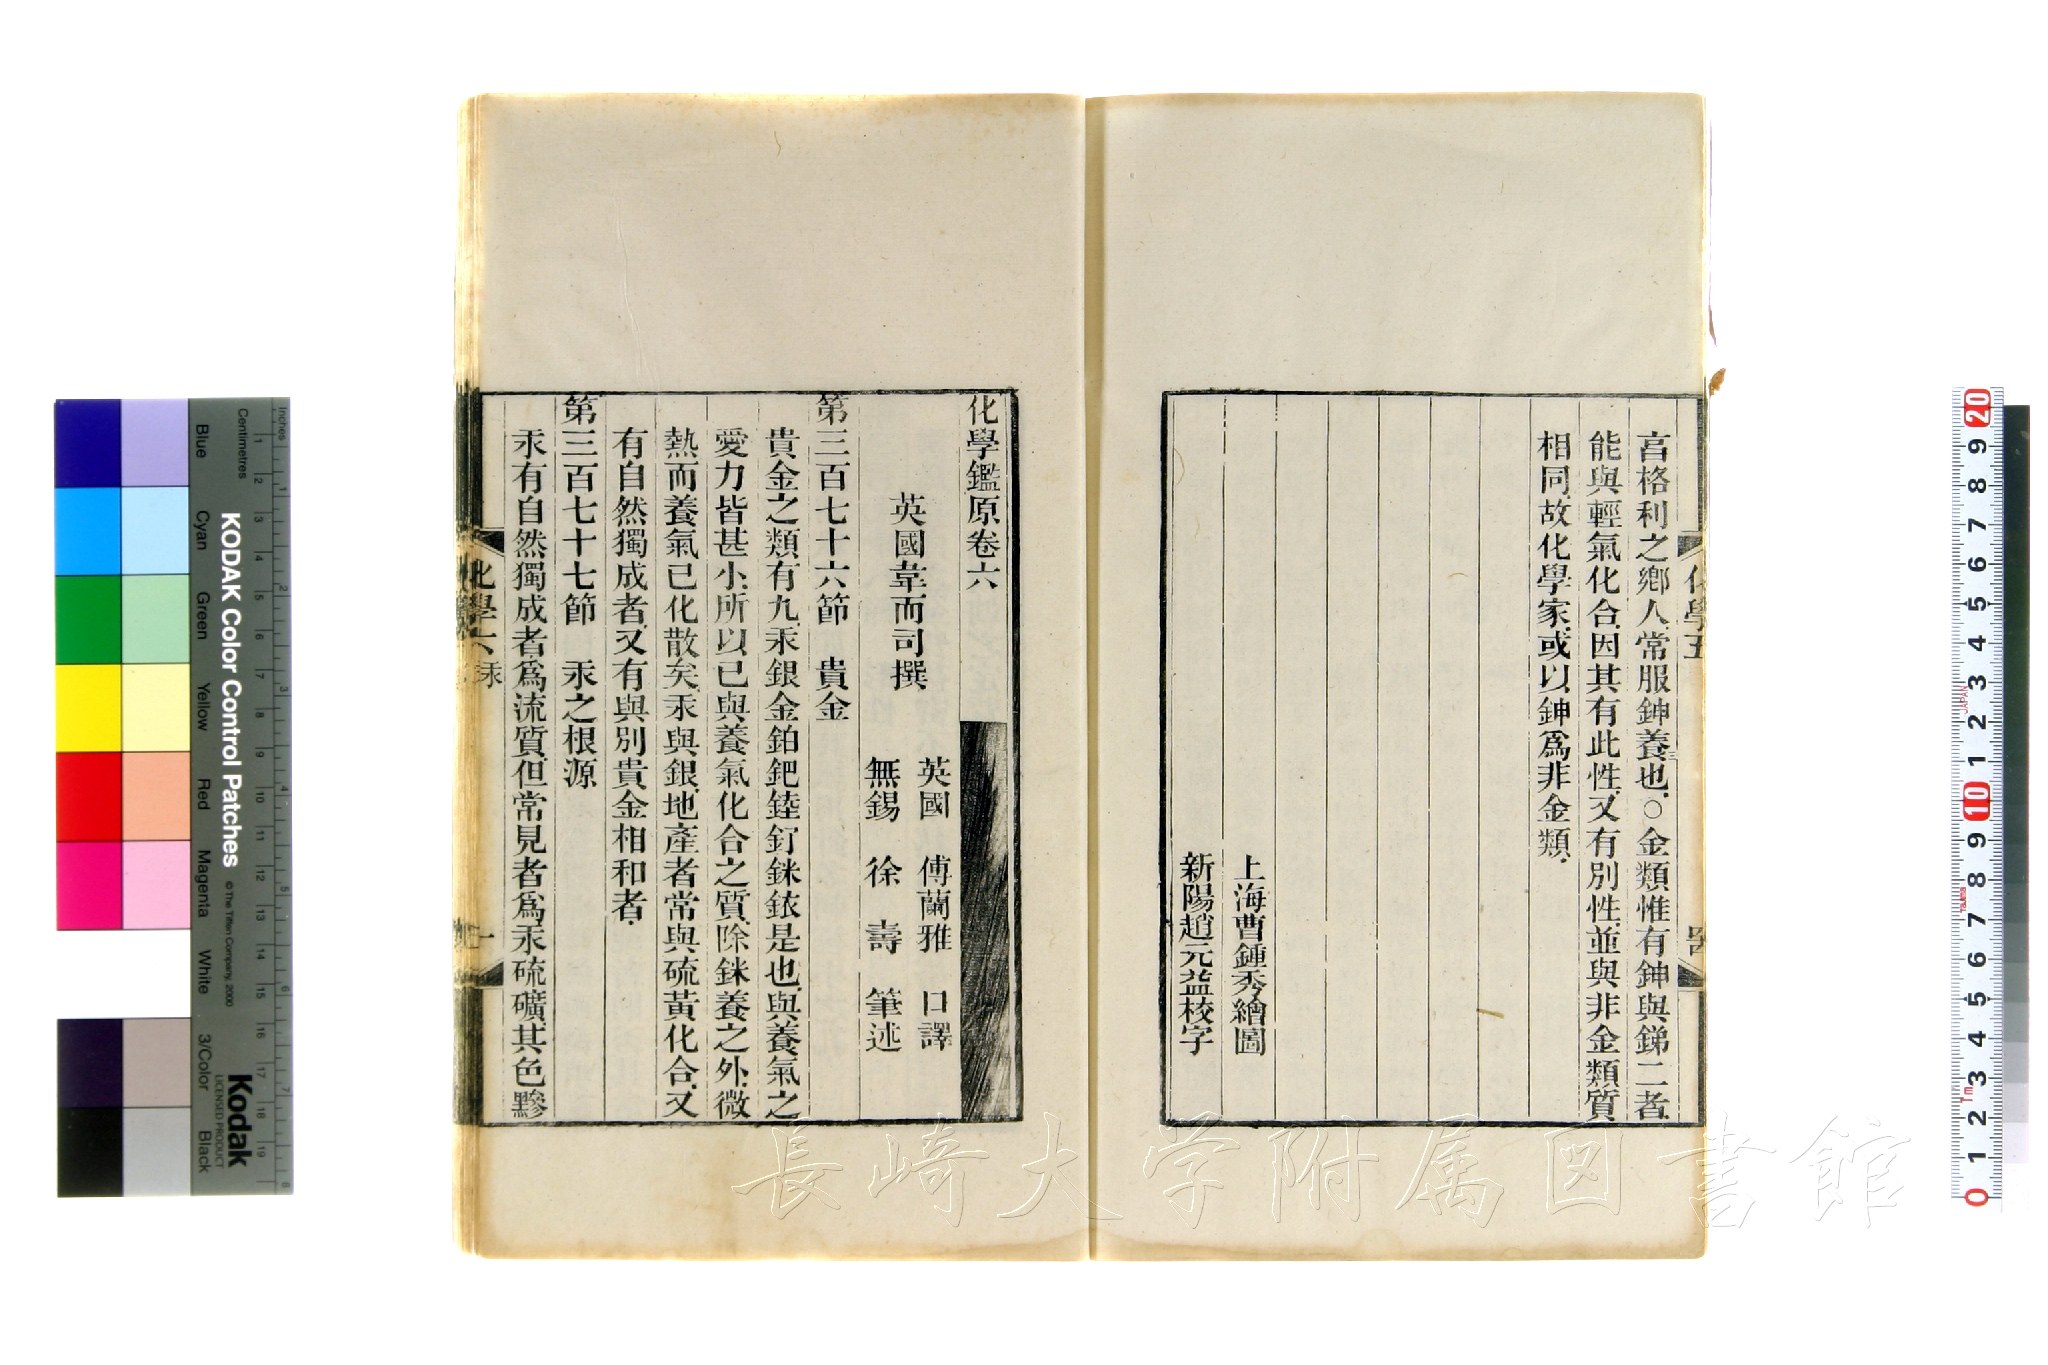 言格利之鄉人常服鉮養也○金類惟有鉮與銻二者
能與輕氣化合因其有此性又有別性並與非金類質
相同故化學家或以鉮爲非金類
上海曹鍾秀繪圖
新陽趙元益校字
化學五
化學鑑原卷六
英國韋而司撰
英國 傅蘭雅 口譯
無錫 徐壽 筆述
第三百七十六節 貴金
貴金之類有九汞銀金鉑鈀錴釕銤銥是也與養氣之
愛力皆甚小所以已與養氣化合之質除銤養之外微
熱而養氣已化散矣汞與銀地產者常與硫黃化合又
有自然獨成者又有與別貴金相和者
第三百七十七節 汞之根源
汞有自然獨成者爲流質但常見者爲汞硫礦其色黲
化學六 汞
一
長崎大学附属図書館
KODAK Color Control Patches
© The Tiffen Company, 2000
Kodak
LICENSED PRODUCT
Inches
Centimetres
Blue
Cyan
Green
Yellow
Red
Magenta
White
3/Color
Black
1 2 3 4 5 6 7 8
1 2 3 4 5 6 7 8 9 10 11 12 13 14 15 16 17 18 19
0 1 2 3 4 5 6 7 8 9 10 1 2 3 4 5 6 7 8 9 20
JAPAN